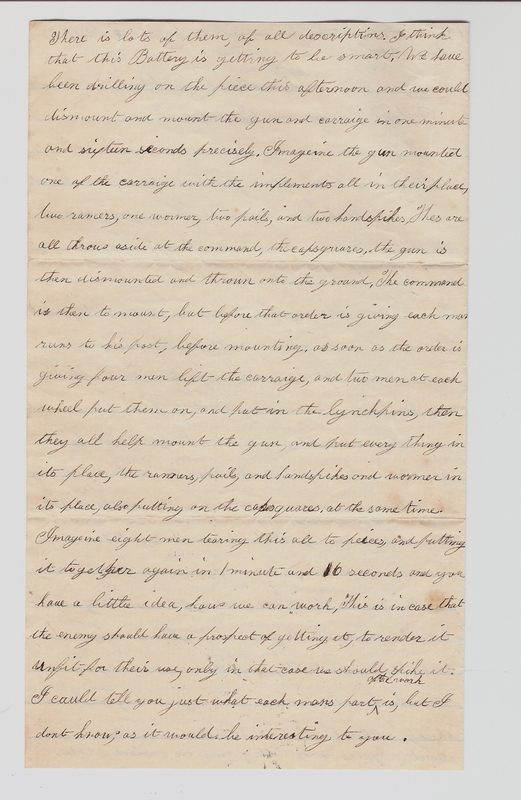 There is lots of them, of all descriptions. I think
that this Battery is getting to be smart, We have
been drilling on the piece this afternoon and we could
dismount and mount the gun and carraige in one minute
and sixteen seconds precisely. Imageine the gun mounted
one of the carraige with the implements all in their place,
two ramers, one wormer, two pails, and two handspikes, Thes are
all throus aside at the command, the capsquares, the gun is
then dismounted and thrown onto the ground, The command
is then to mount, but before that order is giving each man
runs to his post, before mounting. as soon as the order is
giving four men lift the carraige, and two men at each
wheel put them on, and put in the lynchpins, then
they all help mount the gun, and put every thing in
its place, the rammers, pails, and handspikes and wormer in
its place, also putting on the capsquares, at the same time.
Imageine eight men tearing this all to peices and putting
it together again in 1 minute and 16 seconds and you
have a little idea, hous we can work, This is in case that
the enemy should have a prospect of getting it, to render it
unfit for their use, only in that case we should spike it.
I could tell you just what each mans part of the work is, but I
dont know, as it would be interesting to you.